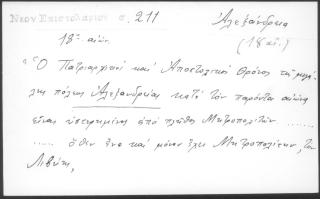 Νεον Επιστολαριον σ. 211
Ἀλεξάνδρεια
18ος αἰών.
(18 αἰ.)
"Ὁ Πατριαρχικὸς καὶ Ἀποστολικὸς Θρόνος τῆς μεγά
λης πόλεως Ἀλεξανδρείας κατὰ τὸν παρόντα αἰῶνα
εἶναι ὑστερημένος ἀπὸ πλῆθος Μητροπολιτῶν ......
..... ὅθεν ἕνα καὶ μόνον ἔχει Μητροπολίτην, τὸν
Λιβύης,